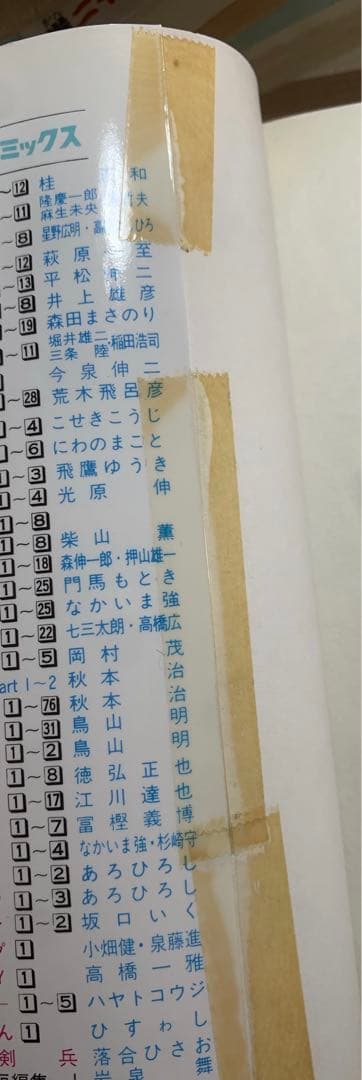 ミックス
~12 桂 和
隆慶一郎 哲夫
~11 麻生未央
~8 星野広明・高 ひろ
~12 萩原 至
~13 平松 二
~8 井上雄彦
~19 森田まさのり
堀井雄二
~11 三条 陸・稲田浩司
今泉伸二
~28 荒木飛呂彦
1~4 こせきこうじ
1~6 にわのまこと
1~3 飛鷹ゆうき
1~4 光原 伸
1~8
1~8 柴山 薫
1~18 森伸一郎・押山雄一
1~25 門馬もとき
1~25 なかいま強
1~22 七三太朗・高橋広
1~5 岡村 茂
art 1~2 秋本 治
1~76 秋本 治
1~31 鳥山 明
1~2 鳥山 明
1~8 徳弘正也
1~17 江川達也
1~7 冨樫義博
1~4 なかいま強・杉崎守
1~2 あろひろし
1~3 あろひろし
1~2 坂口いく
1 小畑健・泉藤進
1 高橋一雅
1~5 ハヤトコウジ
ん 1 ひすゎし
剣 兵 落合ひさお
短編集 1 岩泉 舞